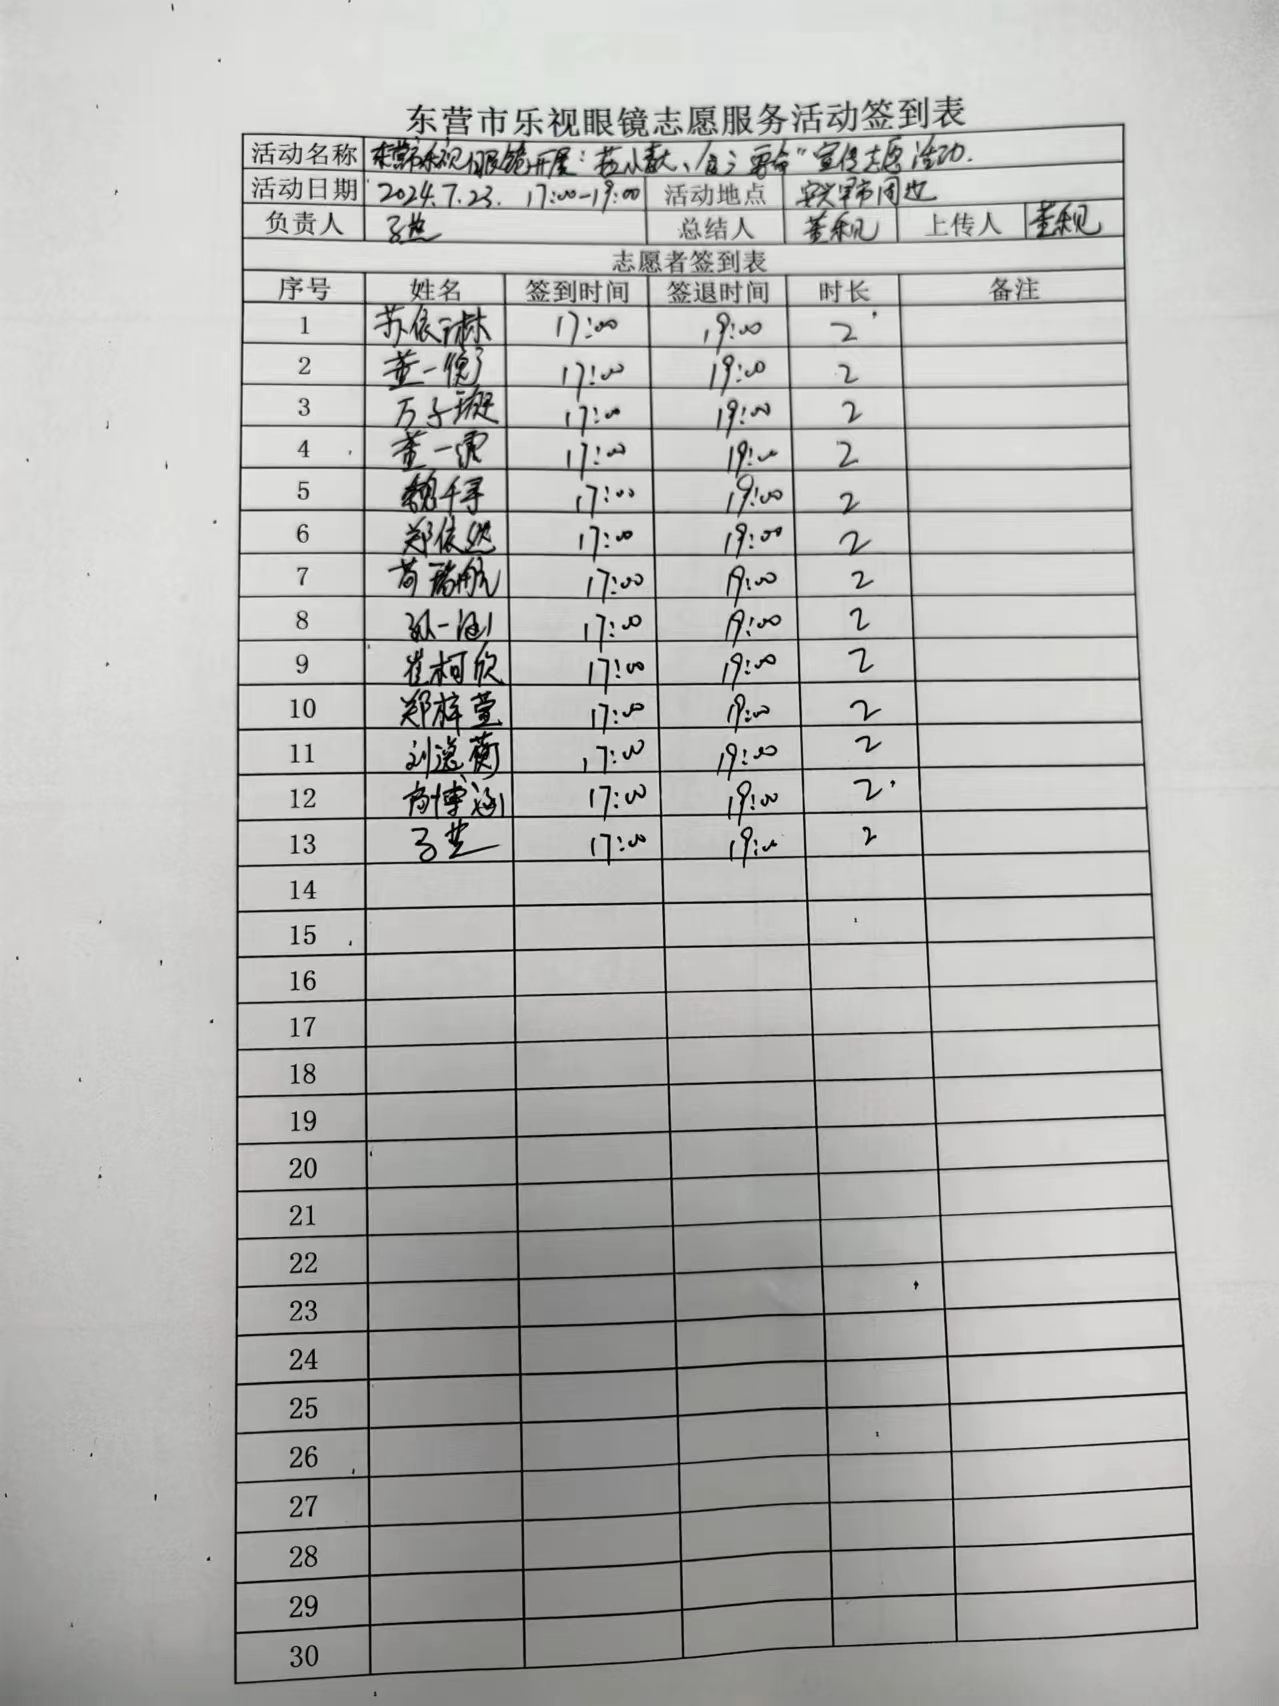 东营市乐视眼镜志愿服务活动签到表
活动名称 东营市乐视眼镜开展："宣传志愿活动.
活动日期 2024.7.23. 17:00-19:00 活动地点 周边
负责人 总结人 董 上传人 董
志愿者签到表
序号 姓名 签到时间 签退时间 时长 备注
1 苏依琳 17:00 19:00 2
2 董一 17:00 19:00 2
3 万子 17:00 19:00 2
4 董一 17:00 19:00 2
5 千寻 17:00 19:00 2
6 郑依然 17:00 19:00 2
7 17:00 19:00 2
8 孙一涵 17:00 19:00 2
9 崔柯欣 17:00 19:00 2
10 郑梓萱 17:00 19:00 2
11 刘蘅 17:00 19:00 2
12 博涵 17:00 19:00 2
13 17:00 19:00 2
14
15
16
17
18
19
20
21
22
23
24
25
26
27
28
29
30